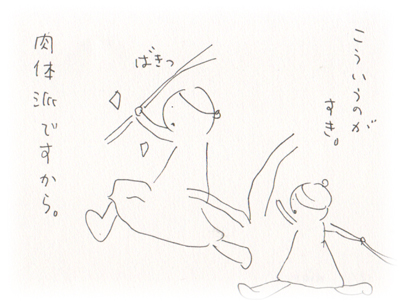 こういうのが
すき。
ばきっ
肉体派ですから。